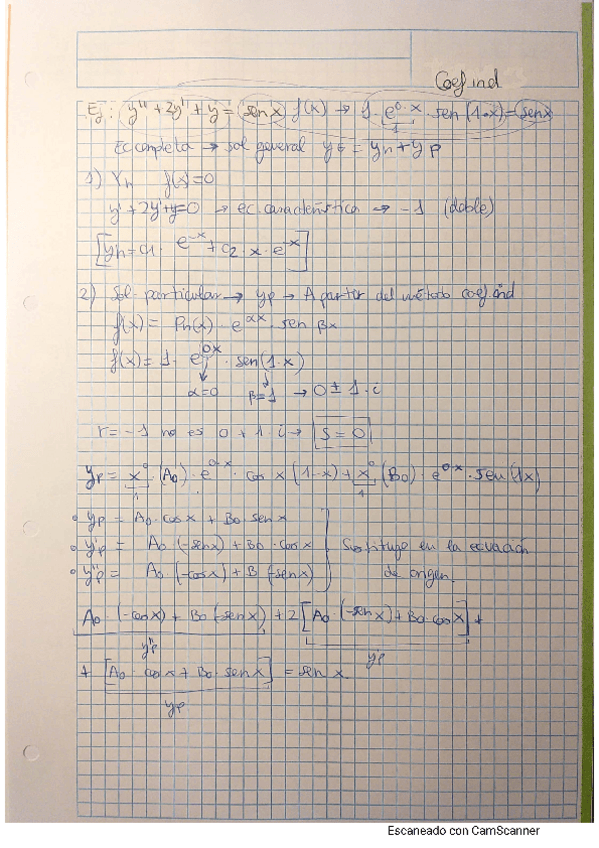 Coef ind
Ej: y'' + 2y' + y = sen x f(x) → 1 · e^0·x · sen (1·x) = sen x
1
Ec completa → sol general yG = yh + yp
1) Yh f(x)=0
y' + 2y' + y = 0 → ec. característica → -1 (doble)
[yh = c1 · e^-x + c2 · x · e^-x]
2) Sol. particular → yp → A partir del método coef. ind
f(x) = Pn(x) · e^αx · sen βx
f(x) = 1 · e^0x · sen (1·x)
α=0 β=1 → 0 ± 1·i
r = -1 no es 0 + 1·i → S = 0
yp = x^0 · (A0) · e^0·x · cos x (1·x) + x^0 (B0) · e^0·x · sen (1x)
1 1
• yp = A0 · cos x + B0 · sen x
• y'p = A0 (-sen x) + B0 · cos x } Sustituyo en la ecuación
• y''p = A0 (-cos x) + B (-sen x) de origen.
A0 · (-cos x) + B0 (-sen x) + 2 [A0 · (-sen x) + B0 · cos x] +
y''p y'p
+ [A0 · cos x + B0 · sen x] = sen x
yp
Escaneado con CamScanner